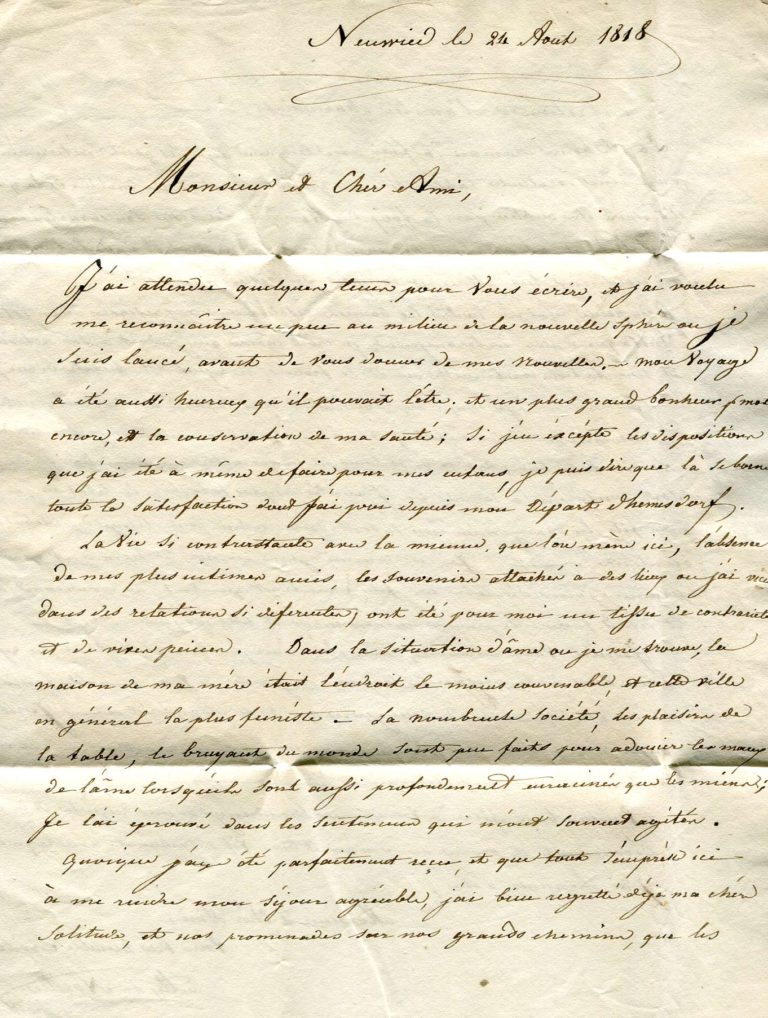 Neuwied le 24 Aout 1818
Monsieur et Chér Ami,
J'ai attendu quelques tems pour Vous écrire, et j'ai voulu
me reconnaître un peu au milieu de la nouvelle sphère ou je
suis lancé, avant de vous donner de mes nouvelles. – mon Voyage
a été aussi heureux qu'il pouvait l'être; et un plus grand bonheur p moi
encore, est la conservation de ma santé; Si j'en excépte les dispositions
que j'ai été à même de faire pour mes enfans, je puis dire que là se borne
toute la satisfaction dont j'ai joui depuis mon Départ d'hemsdorf.
La Vie si contrastante avec la mienne, que l'on mène ici, l'absence
de mes plus intimes amis, les souvenirs attachés a des lieux ou j'ai vécu
dans des relations si diferentes, ont été pour moi un tissu de contrariétés
et de vives peines. Dans la situation d'âme ou je me trouve, la
maison de ma mére était l'endroit le moins convenable, et cette ville
en général la plus funéste – La nombreuse société, les plaisirs de
la table, le bruyant du monde sont peu faits pour adoucir les maux
de l'âme lorsqu'ils sont aussi profondement enracinés que les miens;
Je l'ai éprouvé dans les sentimens qui m'ont souvent agités.
Quoique j'aye été parfaitement reçu, et que tout s'empresse ici
à me rendre mon séjour agréable, j'ai bien regretté déja ma chér
solitude, et nos promenades sur nos grands chemins, que les